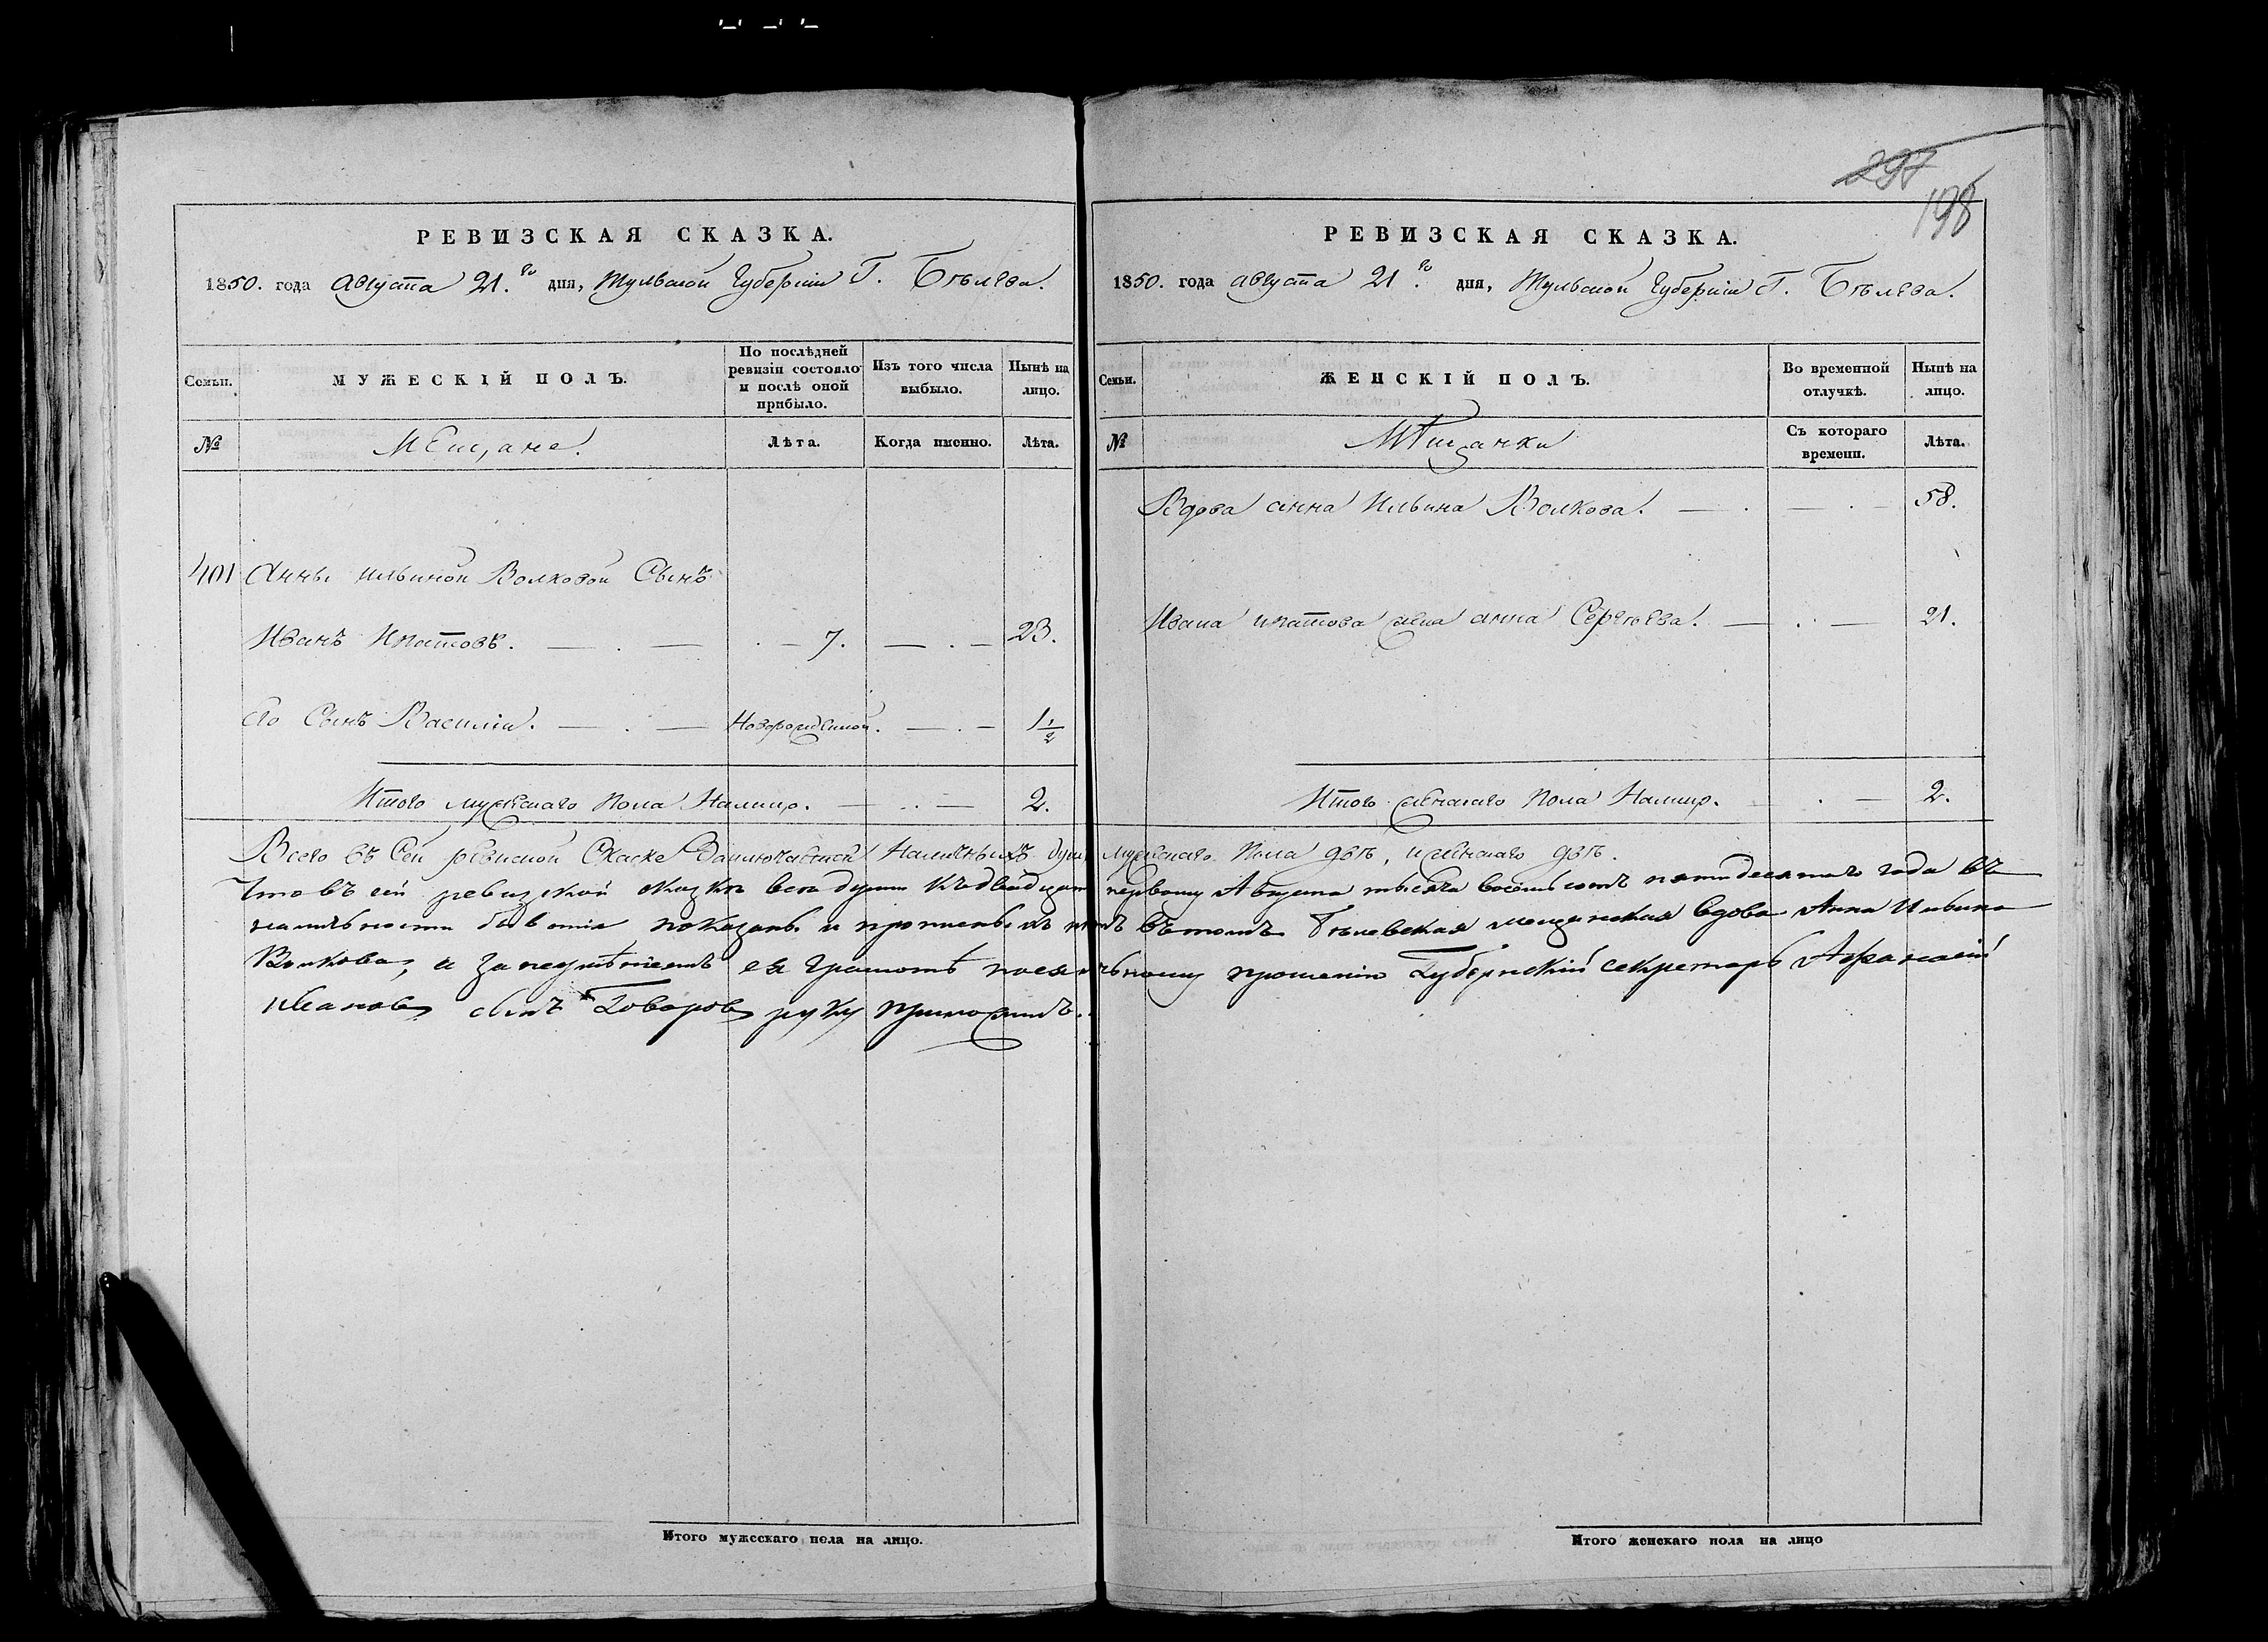 297
198
РЕВИЗСКАЯ СКАЗКА.
1850. года Августа 21.го дня, Тульской Губерніи Г. Бѣлева.
Семьи.
МУЖЕСКІЙ ПОЛЪ.
По послѣдней ревизіи состояло и послѣ оной прибыло.
Изъ того числа выбыло.
Нынѣ на лицо.
№
Мещане.
Лѣта.
Когда именно.
Лѣта.
401 Анны Ильиной Волковой Сынъ
Иванъ Ипатовъ. — . — . — 7. — . — 23.
Его Сынъ Василій. — . — Новорожденной. — . — 1 1/2
Итого мужескаго пола Налицо. — .. — 2.
РЕВИЗСКАЯ СКАЗКА.
1850. года Августа 21.го дня, Тульской Губерніи Г. Бѣлева.
Семьи.
ЖЕНСКІЙ ПОЛЪ.
Во временной отлучкѣ.
Нынѣ на лицо.
№
Мѣщанки
Съ котораго времени.
Лѣта.
Вдова Анна Ильина Волкова. — . — . — 58.
Ивана Ипатова жена Анна Сергѣева. — . — 21.
Итого женскаго пола Налицо. . — 2.
Всего въ Сей ревиской Скаске Заключается Наличныхъ душ мужескаго Пола двѣ, и женскаго двѣ.
Что въ сей ревизской сказкѣ всѣ души къ двадцать первому Августа тысяча восемьсотъ пятидесятаго года въ
наличности бывшія показаны и прописныхъ нѣтъ въ томъ Бѣлевская мещанская вдова Анна Ильина
Волкова, а за неумѣніемъ ея грамотѣ по ея личному прошенію Губернскій секретарь Афанасій
Ивановъ сынъ Говоровъ руку приложилъ.
Итого мужескаго пола на лицо.
Итого женскаго пола на лицо